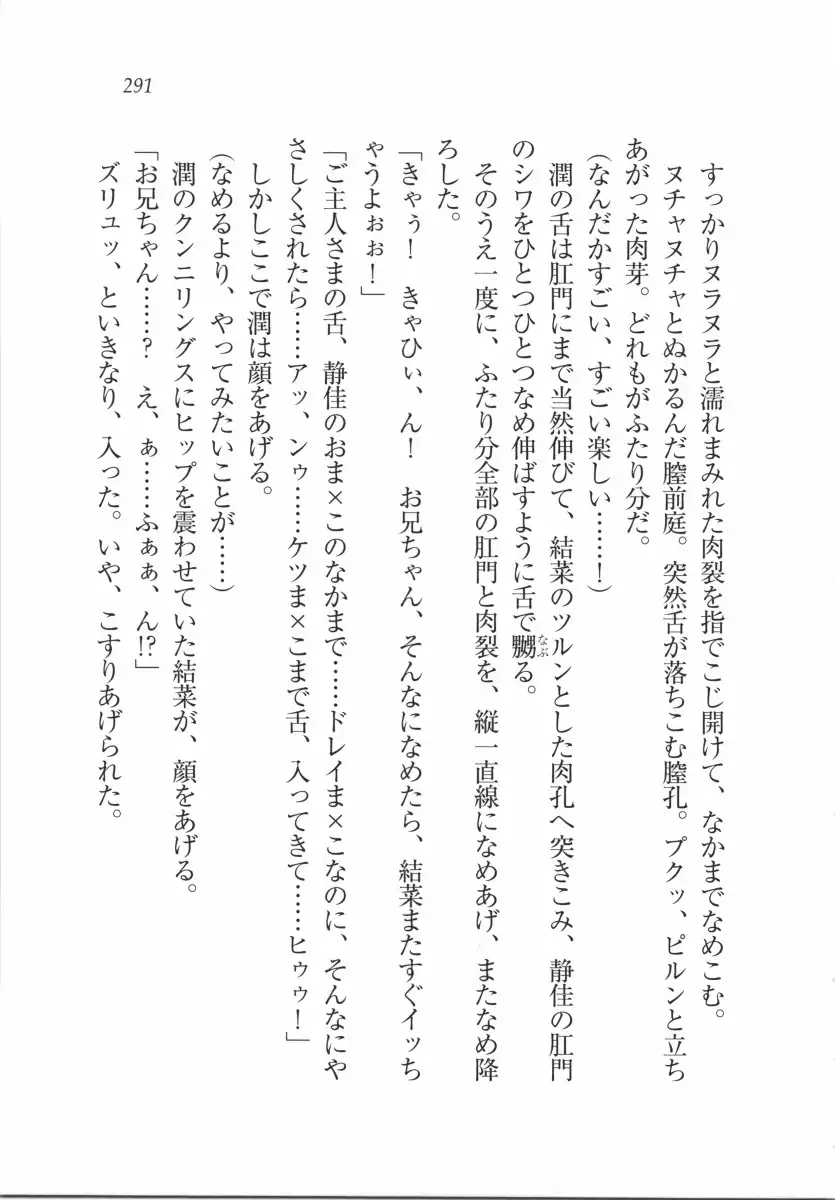 291
すっかりヌラヌラと濡れまみれた肉裂を指でこじ開けて、なかまでなめこむ。
ヌチャヌチャとぬかるんだ膣前庭。突然舌が落ちこむ膣孔。プクッ、ピルンと立ち
あがった肉芽。どれもがふたり分だ。
(なんだかすごい、すごい楽しい……！)
潤の舌は肛門にまで当然伸びて、結菜のツルンとした肉孔へ突きこみ、静佳の肛門
のシワをひとつひとつなめ伸ばすように舌で嬲なぶる。
そのうえ一度に、ふたり分全部の肛門と肉裂を、縦一直線になめあげ、またなめ降
ろした。
「きゃぅ！　きゃひぃ、ん！　お兄ちゃん、そんなになめたら、結菜またすぐイッち
ゃうよぉぉ！」
「ご主人さまの舌、静佳のおま×このなかまで……ドレイま×こなのに、そんなにや
さしくされたら……アッ、ンゥ……ケツま×こまで舌、入ってきて……ヒゥゥ！」
しかしここで潤は顔をあげる。
(なめるより、やってみたいことが……)
潤のクンニリングスにヒップを震わせていた結菜が、顔をあげる。
「お兄ちゃん……？　え、ぁ……ふぁぁ、ん!?」
ズリュッ、といきなり、入った。いや、こすりあげられた。